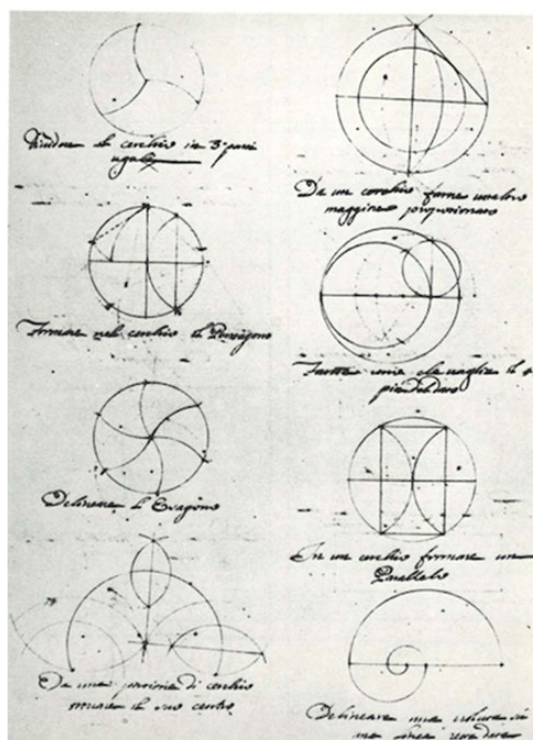 Dividere il cerchio in 3 parti
uguale
Formare nel cerchio il Pentagono
Delineare l'Esagono
Da una porzione di cerchio
trovare il suo centro
Da un cerchio farne un altro
maggiore proporzionato
Farne che vaglia il
più del dato
In un cerchio formare un
Parallelo
Delineare una voluta in
una linea